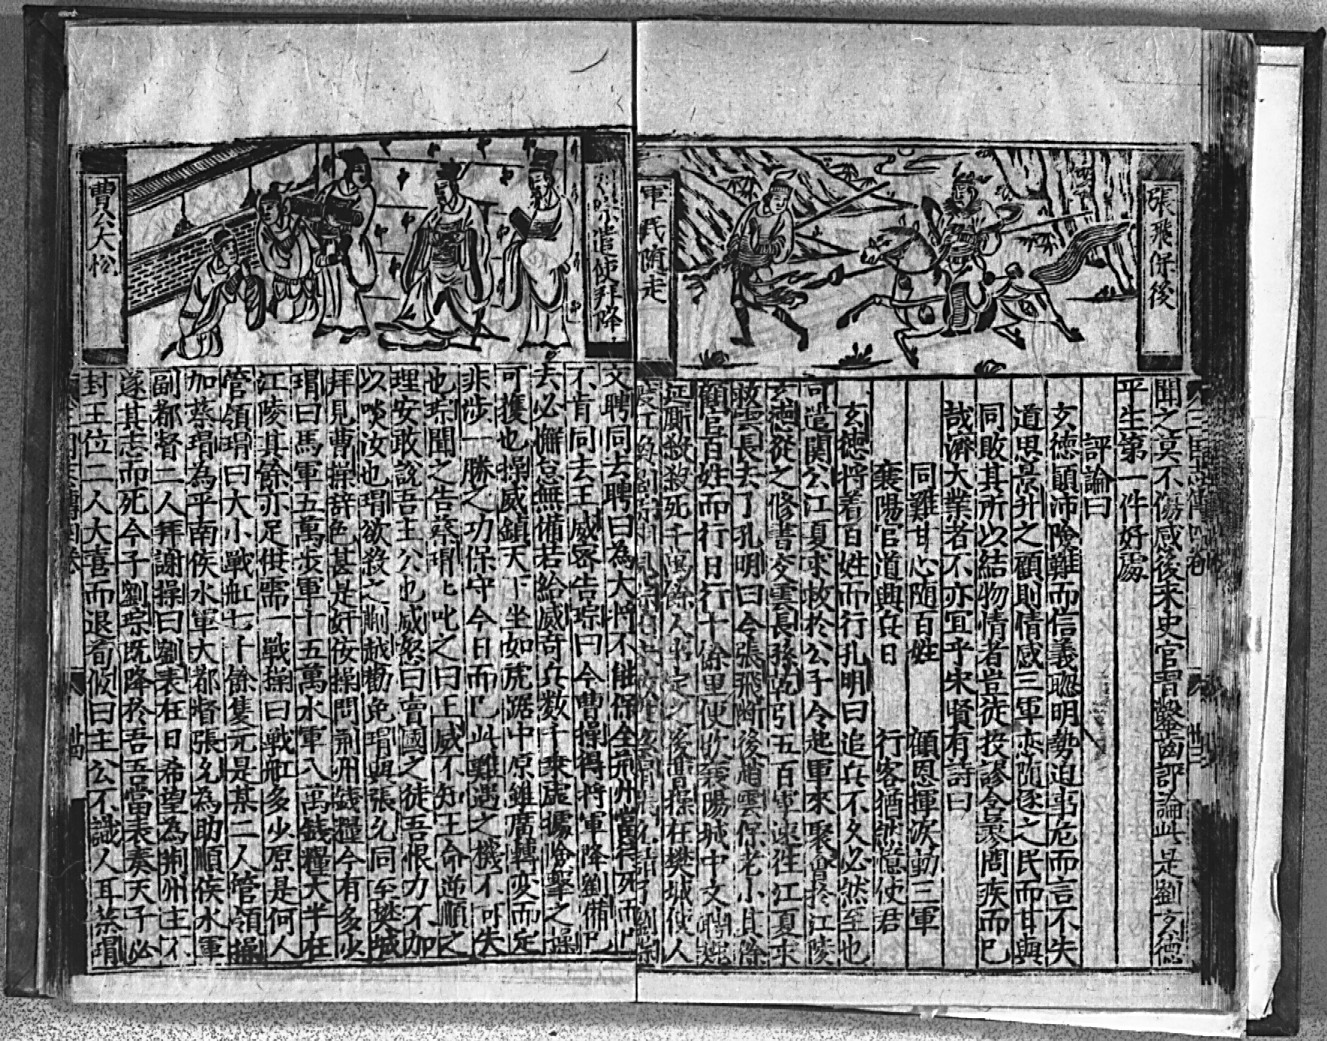 張飛保後
軍民隨走
聞之莫不傷感後來史官習鑿齒評論此是劉玄德
平生第一件好處
評論曰
玄德顛沛險難而信義聰明勢迫事危而言不失
道思景升之顧則情感三軍亦隨逐之民而甘與
同敗其所以結物情者豈徒投謬含蓼問疾而已
哉濟大業者不亦宜乎宋賢有詩曰
同難甘心隨百姓 顧恩揮淚動三軍
襄陽官道興兵日 行客猶然憶使君
玄德將着百姓而行孔明曰追兵不久必然至也
可遣關公江夏求救於公子令起軍來聚會於江陵
玄德從之修書令雲長孫乾引五百軍速往江夏求
救雲長去了孔明曰令張飛斷後趙雲保老小其餘
顧官百姓而行日行十餘里便
襄陽城中文聘魏
延廝殺殺死千
曹操在樊城使人
渡江
劉琮遣使拜降
曹公大悅
文聘同去聘曰為大將不能保全荊州當待死而已
不肯同去王威密告琮曰今曹操得將軍降劉備已
去必懈怠無備若給威奇兵數千乘虛據險擊之操
可獲也操威鎮天下坐如虎踞中原雖廣轉變而定
非涉一勝之功保守今日而已此難遇之機不可失
也琮聞之告蔡瑁瑁叱之曰王威不知王命逆順之
理安敢說吾主公也威怒曰賣國之徒吾恨力不加
以啖汝也瑁欲殺之蒯越勸免瑁與張允同至樊城
拜見曹操辞色甚是奸佞操問荊州錢糧今有多少
瑁曰馬軍五萬步軍十五萬水軍八萬錢糧大半在
江陵其餘亦足供需一戰操曰戰舡多少原是何人
管領瑁曰大小戰舡七十餘隻元是某二人管領操
加蔡瑁為平南侯水軍大都督張允為助順侯水軍
副都督二人拜謝操曰劉表在日希望為荊州主不
遂其志而死今子劉琮既降於吾吾當表奏天子必
封王位二人大喜而退荀攸曰主公不識人耳蔡瑁